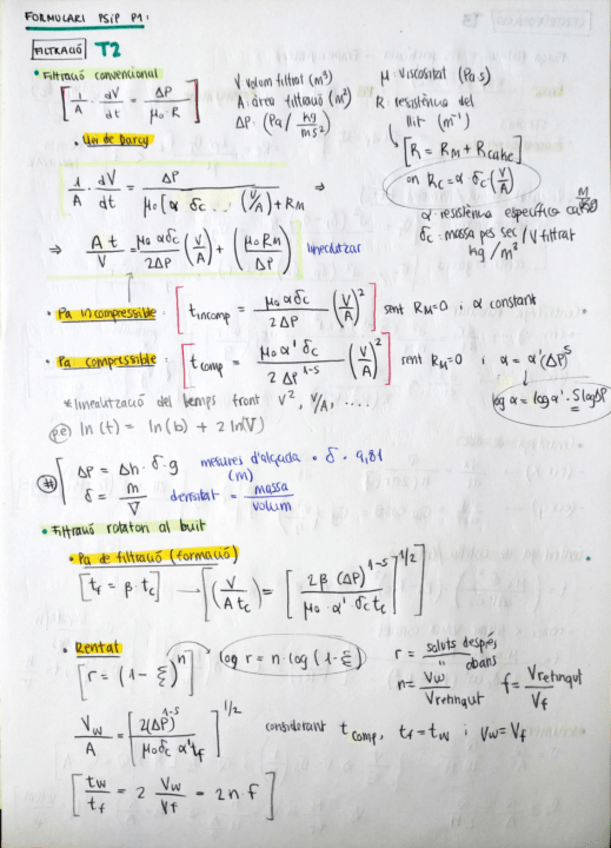 FORMULARI PSIP P1:
FILTRACIÓ T2
• Filtració convencional
[1/A · dV/dt = ΔP/(μ₀·R)]
V volum filtrat (m³)
A: àrea filtració (m²)
ΔP: (Pa/ kg/ms²)
μ: viscositat (Pa·s)
R: resistència del
llit (m⁻¹)
[R = RM + Rcake]
on Rc = α·δc (V/A)
α: resistència específica cake M/kg
δc: massa pes sec / V filtrat
kg/m³
• Llei de Darcy
1/A · dV/dt = ΔP/(μ₀[α δc... (V/A) + RM ⇒
⇒ A t/V = μ₀αδc/2ΔP (V/A) + (μ₀RM/ΔP) linealitzar
• Pa incompressible: [t incomp = μ₀αδc/2ΔP (V/A)²] sent RM=0 i α constant
• Pa compressible: [t comp = μ₀α'δc/2ΔP^(1-S) (V/A)²] sent RM=0 i α = α'(ΔP)^S
log α = log α' · S logΔP
* linealització del temps front V², V/A, ....
(pe) ln(t) = ln(b) + 2 ln(V)
(#) ΔP = Δh · δ · g mesures d'alçada · δ · 9,81
(m)
δ = m/V densitat = massa/volum
• Filtració rotatori al buit
• Pa de filtració (formació)
[tf = β·tc] → [(V/A tc) = [2β (ΔP)^(1-S)/(μ₀·α'·δc tc)]^(1/2)
• Rentat
[r = (1-ξ)^n] log r = n·log(1-ξ)
r = soluts després/" abans
n = Vw/Vretingut f = Vretingut/Vf
Vw/A = [2(ΔP)^(1-S)/(μ₀δc α'tf)]^(1/2) considerant t comp, tf = tw i Vw = Vf
[tw/tf = 2 Vw/Vf = 2n·f]